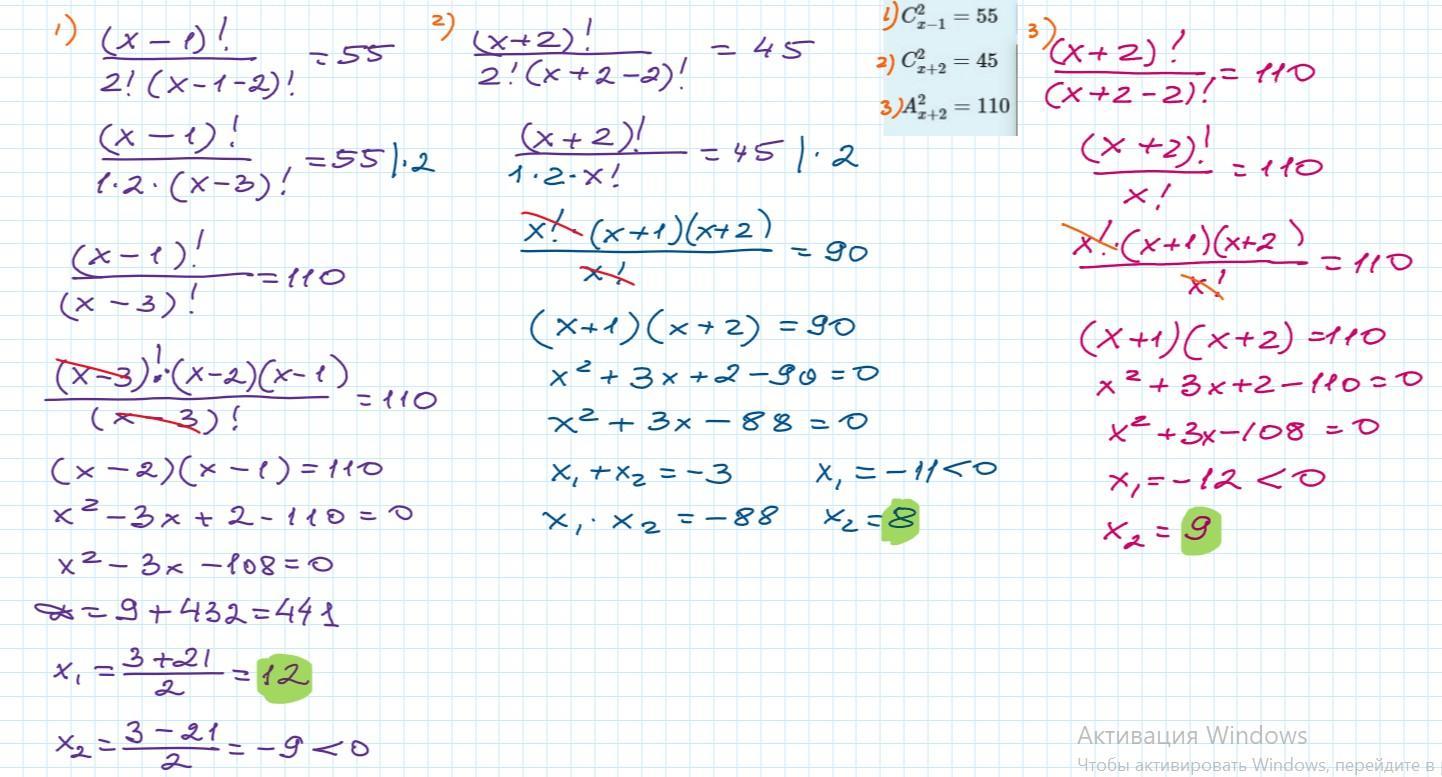 1) (x-1)! / 2!(x-1-2)! = 55
(x-1)! / 1·2·(x-3)! = 55 |·2
(x-1)! / (x-3)! = 110
(x-3)!·(x-2)(x-1) / (x-3)! = 110
(x-2)(x-1) = 110
x² - 3x + 2 - 110 = 0
x² - 3x - 108 = 0
= 9 + 432 = 441
x₁ = (3+21)/2 = 12
x₂ = (3-21)/2 = -9 < 0
2) (x+2)! / 2!(x+2-2)! = 45
(x+2)! / 1·2·x! = 45 |·2
x!·(x+1)(x+2) / x! = 90
(x+1)(x+2) = 90
x² + 3x + 2 - 90 = 0
x² + 3x - 88 = 0
x₁ + x₂ = -3 x₁ = -11 < 0
x₁ · x₂ = -88 x₂ = 8
1) C²ₓ₋₁ = 55
2) C²ₓ₊₂ = 45
3) A²ₓ₊₂ = 110
3) (x+2)! / (x+2-2)! = 110
(x+2)! / x! = 110
x!·(x+1)(x+2) / x! = 110
(x+1)(x+2) = 110
x² + 3x + 2 - 110 = 0
x² + 3x - 108 = 0
x₁ = -12 < 0
x₂ = 9
Активация Windows
Чтобы активировать Windows, перейдите в